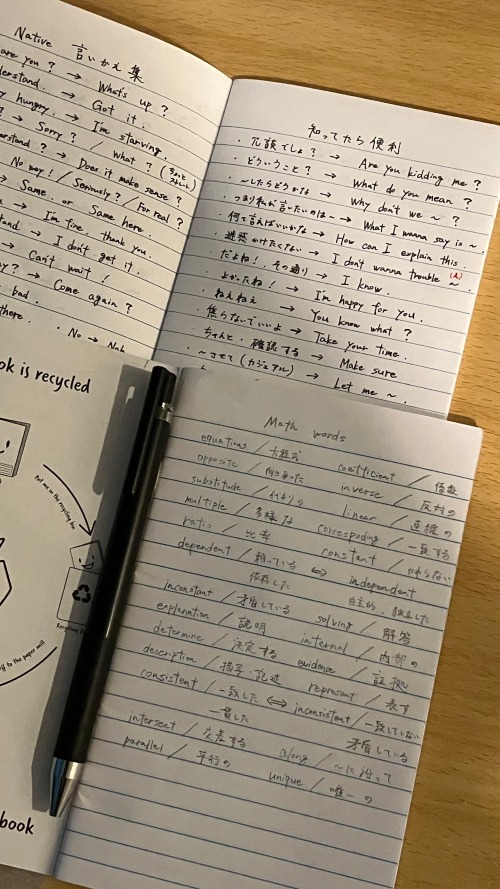 Native 言いかえ集
are you? → What's up?
→ Got it.
hungry. → I'm starving.
? → Sorry? / What? (ちょっとストレート)
? → Does it make sense?
No way! / Seriously? / For real?
→ Same. or Same here.
→ I'm fine, thank you.
→ I don't get it.
→ Can't wait!
? → Come again?
bad.
there
・No → Nah
知ってたら便利
・冗談でしょ? → Are you kidding me?
・どういうこと? → What do you mean?
・~したらどうかな → Why don't we ~?
・つまり私が言いたいのは~ → What I wanna say is ~.
・何て言えばいいかな → How can I explain this
・迷惑かけたくない → I don't wanna trouble ~(人).
・だよね!, その通り → I know.
・よかったね! → I'm happy for you.
・ねえねえ → You know what?
・焦らないでいいよ → Take your time.
・ちゃんと・確認する → Make sure
・~させて(カジュアル) → Let me ~.
ok is recycled
Put me in the recycling box
Recycling
off to the paper mill
book
Math words
equations / 方程式
opposite / 向きあった
substitude / 代わりの
multiple / 多様な
ratio / 比率
dependent / 頼っている 依存した ⇔ independent 自主的, 独立した
inconstant / 矛盾している
explanation / 説明
determine / 決定する
description / 描写・記述
consistent / 一致した 一貫した ⇔ inconsistent / 一致していない 矛盾している
intersect / 交差する
parallel / 平行の
coefficient / 係数
inverse / 反対の
linear / 直線の
correspoding / 一致する
constant / かわらない
solving / 解答
internal / 内部の
guidence / 証拠
represant / 表す
along / ~に沿って
unique / 唯一の